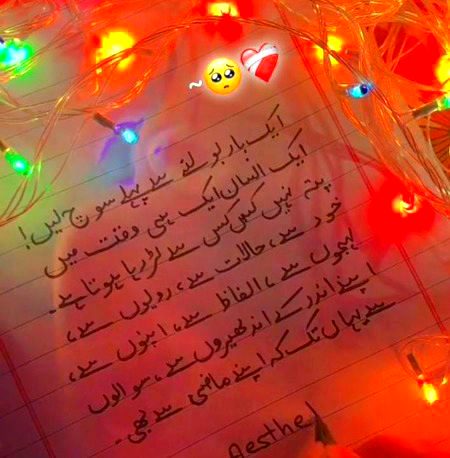 ~🥺❤️‍🩹
ایک بار بولنے سے پہلے سوچ لیں!
ایک انسان ایک ہی وقت میں
پتہ نہیں کس کس سے لڑ رہا ہوتا ہے۔
خود سے، حالات سے، رویوں سے،
لہجوں سے، الفاظ سے، اپنوں سے،
اپنے اندر کے اندھیروں سے، سوالوں
سے یہاں تک کہ اپنے ماضی سے بھی۔
Aesthe